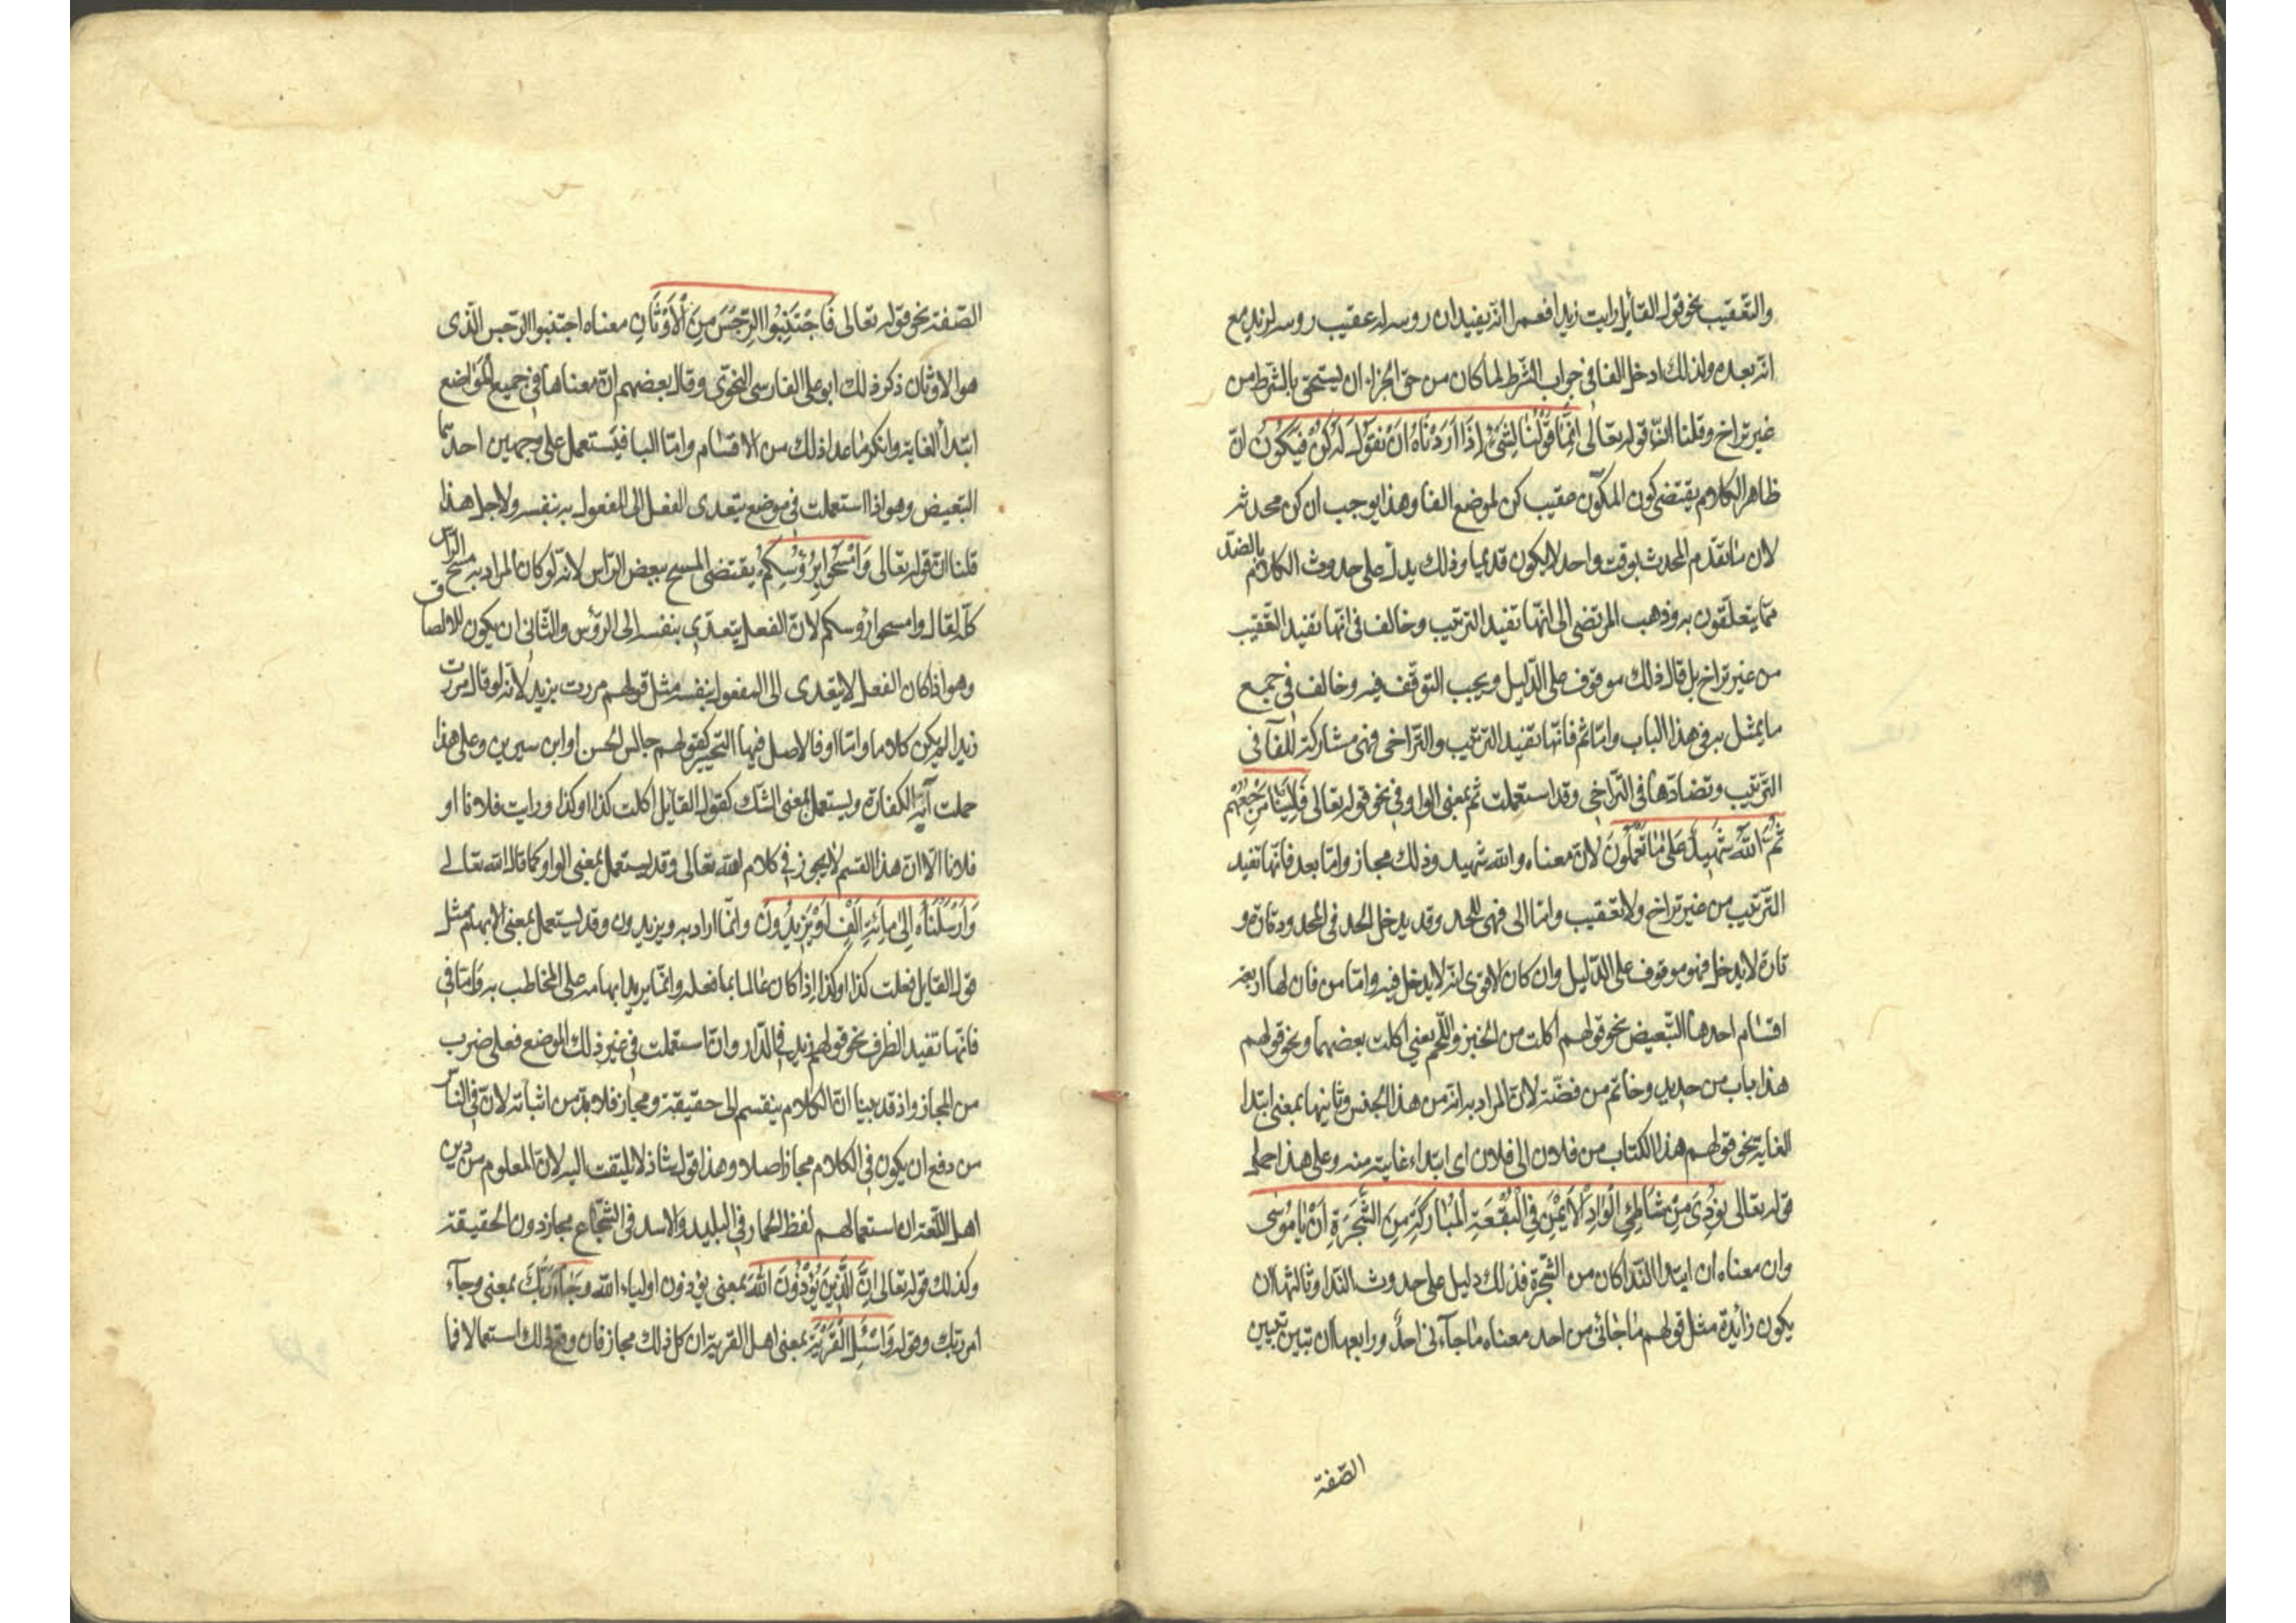 والتعقيب نحو قول القائل رايت زيدا فعمرا انه يفيد ان روسه له عقيب روسه لزيد مع
انه بعده ولذلك ادخل الفا في جواب الشرط لما كان من حق الجزاء ان يستحق بالشرط من
غير تراخ وقلنا انّ قوله تعالى اِنَّمَا قَوْلُنَا لِشَيْءٍ اِذَا اَرَدْنَاهُ اَنْ نَقُولَ لَهُ كُنْ فَيَكُونُ انّ
ظاهر الكلام يقتضي كون المكوّن عقيب كن لموضع الفا وهذا يوجب ان كن محدثه
لان ما تقدم المحدث بوقت واحد لا يكون قديما وذلك يدل على حدوث الكلام بالضد
مما يتعلقون به وذهب المرتضى الى انها تفيد الترتيب وخالف في انها تفيد التعقيب
من غير تراخ بل قال ذلك موقوف على الدليل ويجب التوقف فيه وخالف في جميع
ما يمثل به في هذا الباب وامّا ثم فانها تفيد الترتيب والتراخي فهي مشاركة للفا في
الترتيب وتضادها في التراخي وقد استعملت ثم بمعنى الواو في نحو قوله تعالى فَاِلَيْنَا مَرْجِعُهُمْ
ثُمَّ اللّٰهُ شَهِيدٌ عَلىٰ مَا تَعْمَلُونَ لانّ معناه والله شهيد وذلك مجاز وامّا بعد فانها تفيد
الترتيب من غير تراخ ولا تعقيب وامّا الى فهي للحد وقد يدخل الحد في المحدود تارة و
تارة لا يدخل فهو موقوف على الدليل وان كان الاقوى انه لا يدخل فيه وامّا من فان لها اربعة
اقسام احدها التبعيض نحو قولهم اكلت من الخبز واللحم يعني اكلت بعضهما ونحو قولهم
هذا باب من حديد وخاتم من فضة لانّ المراد به انه من هذا الجنس وثانيها بمعنى ابتدا
الغاية نحو قولهم هذا الكتاب من فلان الى فلان اى ابتداء غايته منه وعلى هذا حمل
قوله تعالى نُودِىَ مِنْ شَاطِئِ الْوَادِ الْاَيْمَنِ فِي الْبُقْعَةِ الْمُبَارَكَةِ مِنَ الشَّجَرَةِ اَنْ يَا مُوسٰى
وان معناه ان ابتدا الندا كان من الشجرة فذلك دليل على حدوث الندا وثالثها ان
يكون زائدة مثل قولهم ما جائني من احد معناه ما جآءني احدٌ ورابعها ان تبين تبيين
الصّفة
الصّفة نحو قوله تعالى فَاجْتَنِبُوا الرِّجْسَ مِنَ الْاَوْثَانِ معناه اجتنبوا الرجس الّذى
هو الاوثان ذكر ذلك ابو على الفارسي النحوي وقال بعضهم انّ معناها في جميع المواضع
ابتدأ الغاية وانكر ما عدا ذلك من الاقسام وامّا البا فيستعمل على وجهين احدهما
التبعيض وهو اذا استعملت في موضع يتعدى الفعل الى المفعول به بنفسه ولاجل هذا
قلنا انّ قوله تعالى وَامْسَحُوا بِرُؤُسِكُمْ يقتضى المسح ببعض الرّاس لانه لو كان المراد به مسح الرّاس
كله لقال وامسحوا رؤسكم لانّ الفعل يتعدى بنفسه الى الرؤس والثاني ان يكون للالصاق
وهو اذا كان الفعل لا يتعدى الى المفعول بنفسه مثل قولهم مررت بزيد لانه لو قال مررت
زيدا لم يكن كلاما وامّا او فالاصل فيها التخيير كقولهم جالس الحسن او ابن سيرين وعلى هذا
حملت آية الكفارة ويستعمل بمعنى الشك كقول القائل اكلت كذا او كذا ورايت فلانا او
فلانا الّا ان هذا القسم لا يجوز في كلام الله تعالى وقد يستعمل بمعنى الواو كما قال الله تعالى
وَاَرْسَلْنَاهُ اِلىٰ مِائَةِ اَلْفٍ اَوْ يَزِيدُونَ وانّما اراد به ويزيدون وقد يستعمل بمعنى الابهام مثل
قول القايل فعلت كذا او كذا اذا كان عالما بما فعله وانّما يريد ابهامه على المخاطب به وامّا في
فانها تفيد الظرف نحو قولهم زيد في الدّار وان استعملت في غير ذلك الموضع فعلى ضرب
من المجاز واذ قد بينا انّ الكلام ينقسم الى حقيقة ومجاز فلا بدّ من اثباته لانّ في النّاس
من دفع ان يكون في الكلام مجاز اصلا وهذا قول شاذ لا يلتفت اليه لانّ المعلوم من دين
اهل اللّغة ان استعمالهم لفظ الحمار في البليد والاسد في الشّجاع مجاز دون الحقيقة
وكذلك قوله تعالى اِنَّ الَّذِينَ يُؤْذُونَ اللهَ بمعنى يؤذون اولياء الله وَجَاءَ رَبُّكَ بمعنى وجآء
امر ربك وقوله وَاسْئَلِ الْقَرْيَةَ بمعنى اهل القرية ان كل ذلك مجاز فان دفع ذلك استعمالا فما